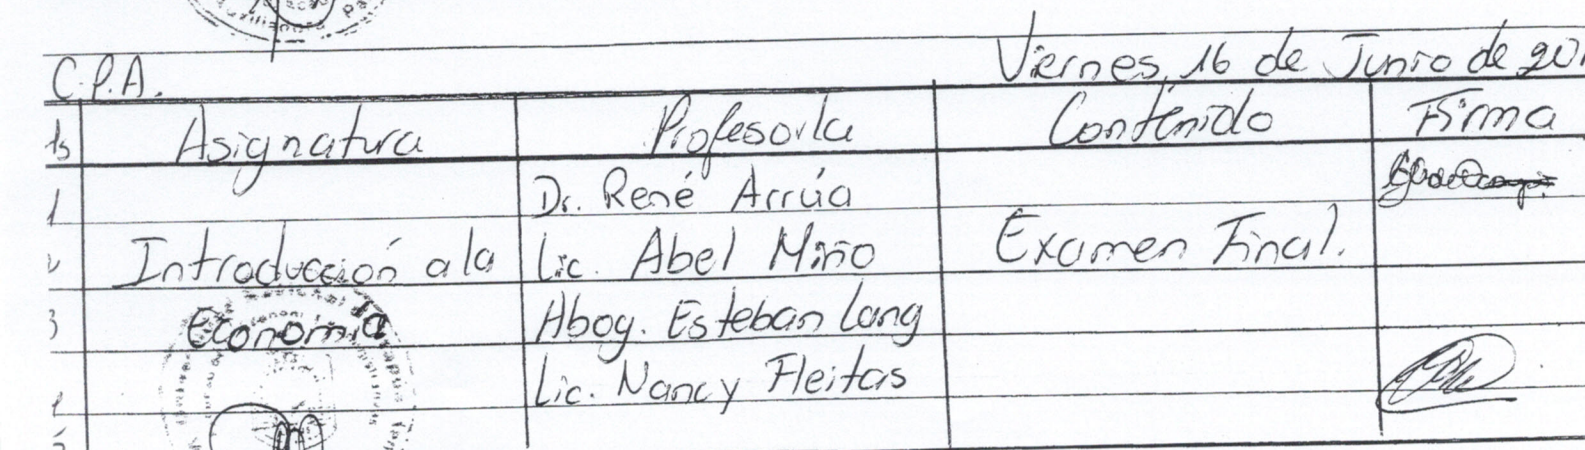 C.P.A.
Viernes, 16 de Junio de
Asignatura Profesor/a Contenido Firma
Dr. René Arrúa
Introducción a la Lic. Abel Miño Examen Final.
3 Economía Abog. Esteban Lang
Lic. Nancy Fleitas